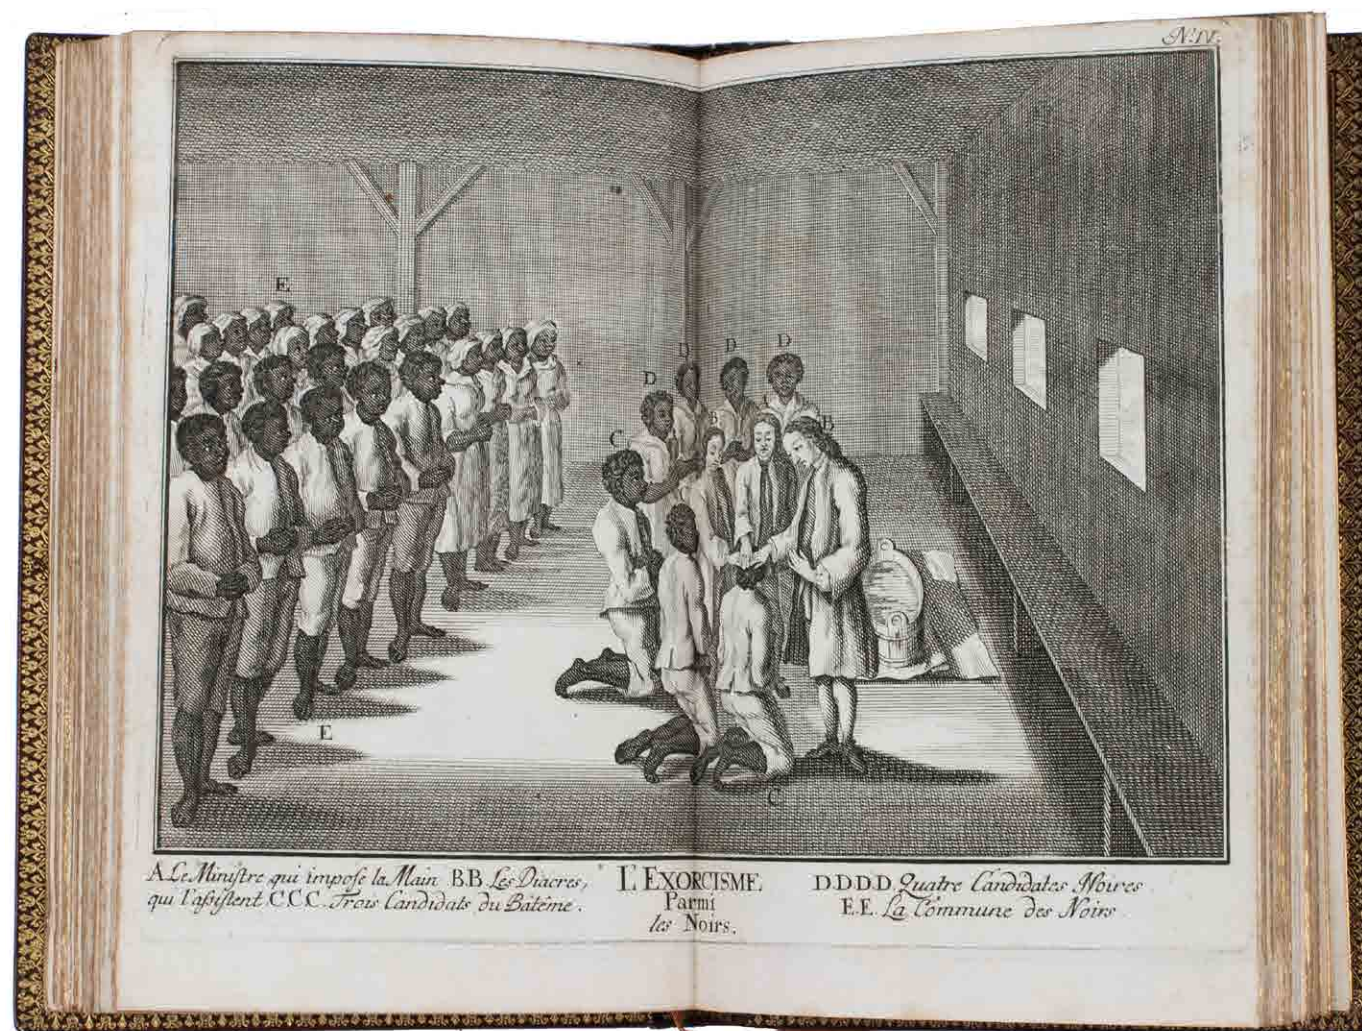 N.º IV.
E
D
D
D
D
C
B
B
E
C
A Le Ministre qui impose la Main B.B Les Diacres,
qui l'assistent C.C.C. Trois Candidats du Batême.
L'EXORCISME
Parmi
les Noirs.
D.D.D.D. Quatre Candidates Noires
E.E. La Commune des Noirs